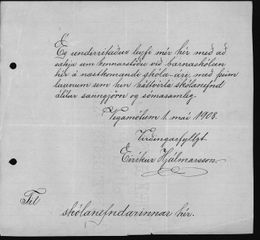 Eg undirritaður leyfi mér hér með að
sækja um kennarastöðu við barnaskólann
hér á næstkomandi skóla-ári, með þeim
launum sem hin háttvirta skólanefnd
álítur sanngjörn og sómasamlig.
Vegamótum 1. maí 1908.
Virðingarfyllst
Eiríkur Hjálmarsson
Til
skólanefndarinnar hér.